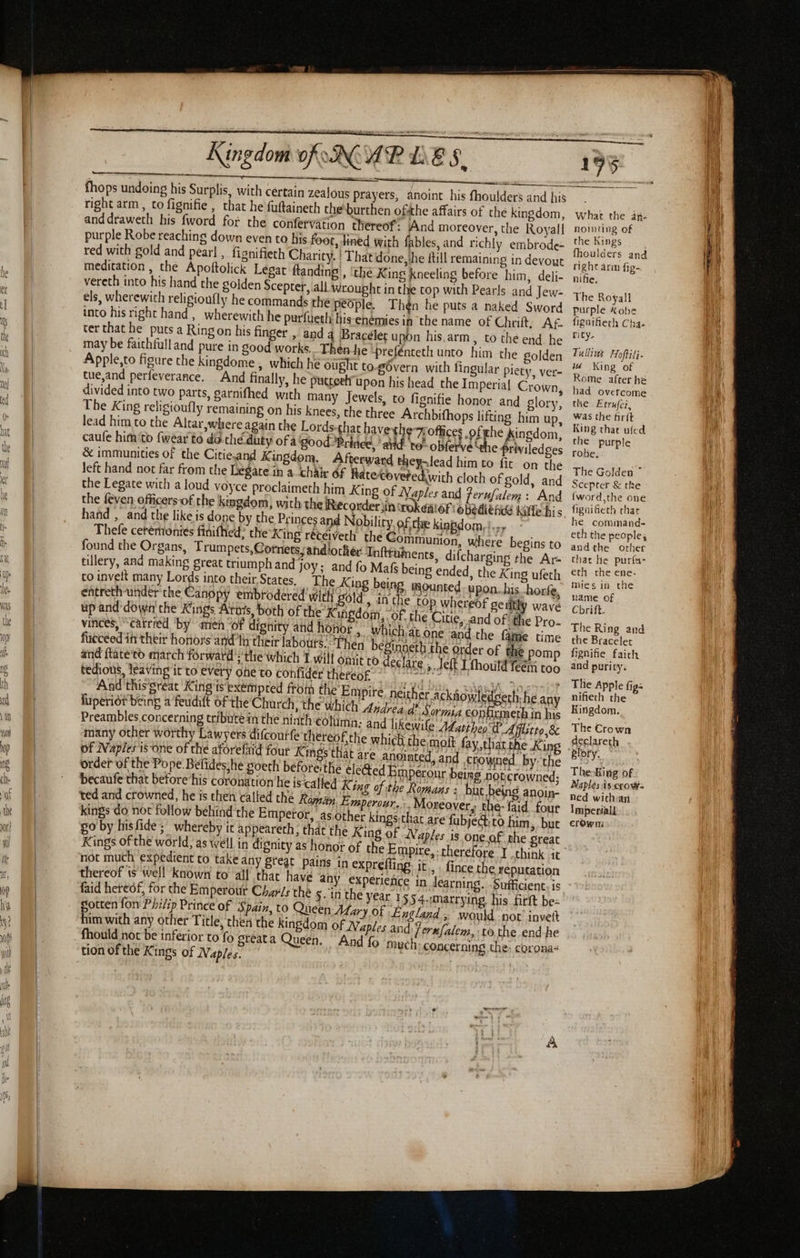 Kingdom of NAPLES,
195
ſhops undoing his Surplis, with certain zealous prayers, anoint his ſhoulders and his
right arm, to ſignifie, that he ſuſtaineth the burthen of the affairs of the kingdom,
and draweth his ſword for the conſervation thereof: And moreover, the Royall
purple Robe reaching down even to his foot, lined with ſables, and richly embrode-
red with gold and pearl, ſignifieth Charity. That done, he ſtill remaining in devout
meditation, the Apoſtolick Legat ſtanding, the King kneeling before him, deli-
vereth into his hand the golden Scepter, all wrought in the top with Pearls and Jew-
els, wherewith religiouſly he commands the people. Then he puts a naked Sword
into his right hand, wherewith he purſueth his enemies in the name of Chriſt, Af-
ter that he puts a Ring on his finger, and a Bracelet upon his arm, to the end he
may be faithfull and pure in good works. Then he preſenteth unto him the golden
Apple, to figure the kingdome, which he ought to govern with ſingular piety, ver-
tue, and perſeverance. And finally, he putteth upon his head the Imperial Crown,
divided into two parts, garniſhed with many Jewels, to ſignifie honor and glory,
The King religiouſly remaining on his knees, the three Archbiſhops lifting him up,
lead him to the Altar, where again the Lords that have the 7 offices of the Kingdom,
cauſe him to ſwear to do the duty of a good Prince, and to obſerve the priviledges
& immunities of the Citie and Kingdom. Afterward they lead him to ſit on the
left hand not far from the Legate in a chair of ſtate covered with cloth of gold, and
the Legate with a loud voyce proclaimeth him King of Naples and Jeruſalem: And
the ſeven officers of the kingdom, with the Recorder in token of obedience kiſſe his
hand, and the like is done by the Princes and Nobility of the kingdom.
Theſe ceremonies finiſhed, the King receiveth the Communion, where begins to
ſound the Organs, Trumpets, Cornets, and other Inſtruments, diſcharging the Ar-
tillery, and making great triumph and joy; and ſo Maſs being ended, the King uſeth
to inveſt many Lords into their States. The King being mounted upon his horſe,
entreth under the Canopy embrodered with gold, in the top whereof gently wave
up and down the Kings Arms, both of the Kingdom, of the Citie, and of the Pro-
vinces, carried by men of dignity and honor, which at one and the ſame time
ſucceed in their honors and in their labours. Then beginneth the order of the pomp
and ſtate to march forward; the which I will omit to declare, leſt I ſhould ſeem too
tedious, leaving it to every one to conſider thereof.
And this great King is exempted from the Empire, neither acknowledgeth he any
ſuperior being a feudiſt of the Church, the which Andrea d' Sormia confirmeth in his
Preambles concerning tribute in the ninth column: and likewiſe Matthew d' Afflitto, &
many other worthy Lawyers diſcourſe thereof, the which the moſt ſay, that the King
of Naples is one of the aforeſaid four Kings that are anointed, and crowned by the
order of the Pope. Beſides, he goeth before the elected Emperour being not crowned;
becauſe that before his coronation he is called King of the Romans: but being anoin-
ted and crowned, he is then called the Roman Emperour. Moreover, the ſaid four
kings do not follow behind the Emperor, as other kings that are ſubject to him, but
go by his ſide; whereby it appeareth, that the King of Naples is one of the great
Kings of the world, as well in dignity as honor of the Empire, therefore I think it
not much expedient to take any great pains in expreſſing it, ſince the reputation
thereof is well known to all that have any experience in learning. Sufficient is
ſaid hereof, for the Emperour Charls the 5. in the year 1554. marrying his firſt be-
gotten ſon Philip Prince of Spain, to Queen Mary of England, would not inveſt
him with any other Title, then the kingdom of Naples and Jeruſalem, to the end he
ſhould not be inferior to ſo great a Queen. And ſo much concerning the corona-
tion of the Kings of Naples.
What the an-
nointing of
the Kings
ſhoulders and
right arm ſig-
nifie.
The Royall
purple Robe
ſignifieth Cha-
rity.
Tullius Hoſtili-
us King of
Rome after he
had overcome
the Etruſci,
was the firſt
King that uſed
the purple
robe.
The Golden
Scepter & the
ſword, the one
ſignifieth that
he command-
eth the people,
and the other
that he purſu-
eth the ene-
mies in the
name of
Chriſt.
The Ring and
the Bracelet
ſignifie faith
and purity.
The Apple ſig-
nifieth the
Kingdom.
The Crown
declareth
glory.
The King of
Naples is crow-
ned with an
Imperiall
crown.
A